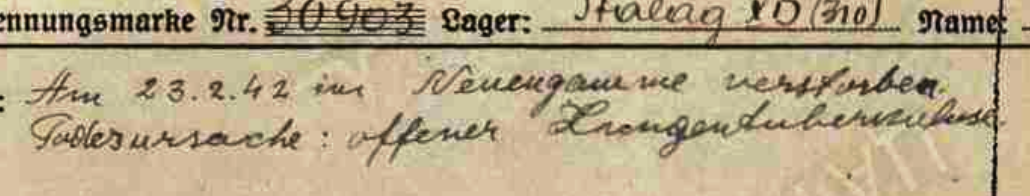 ennungsmarke Nr. 30903 Lager: Stalag XD (310) Name:
: Am 23.2.42 in Neuengamme verstorben.
Todesursache: offener Lungentuberkulose.